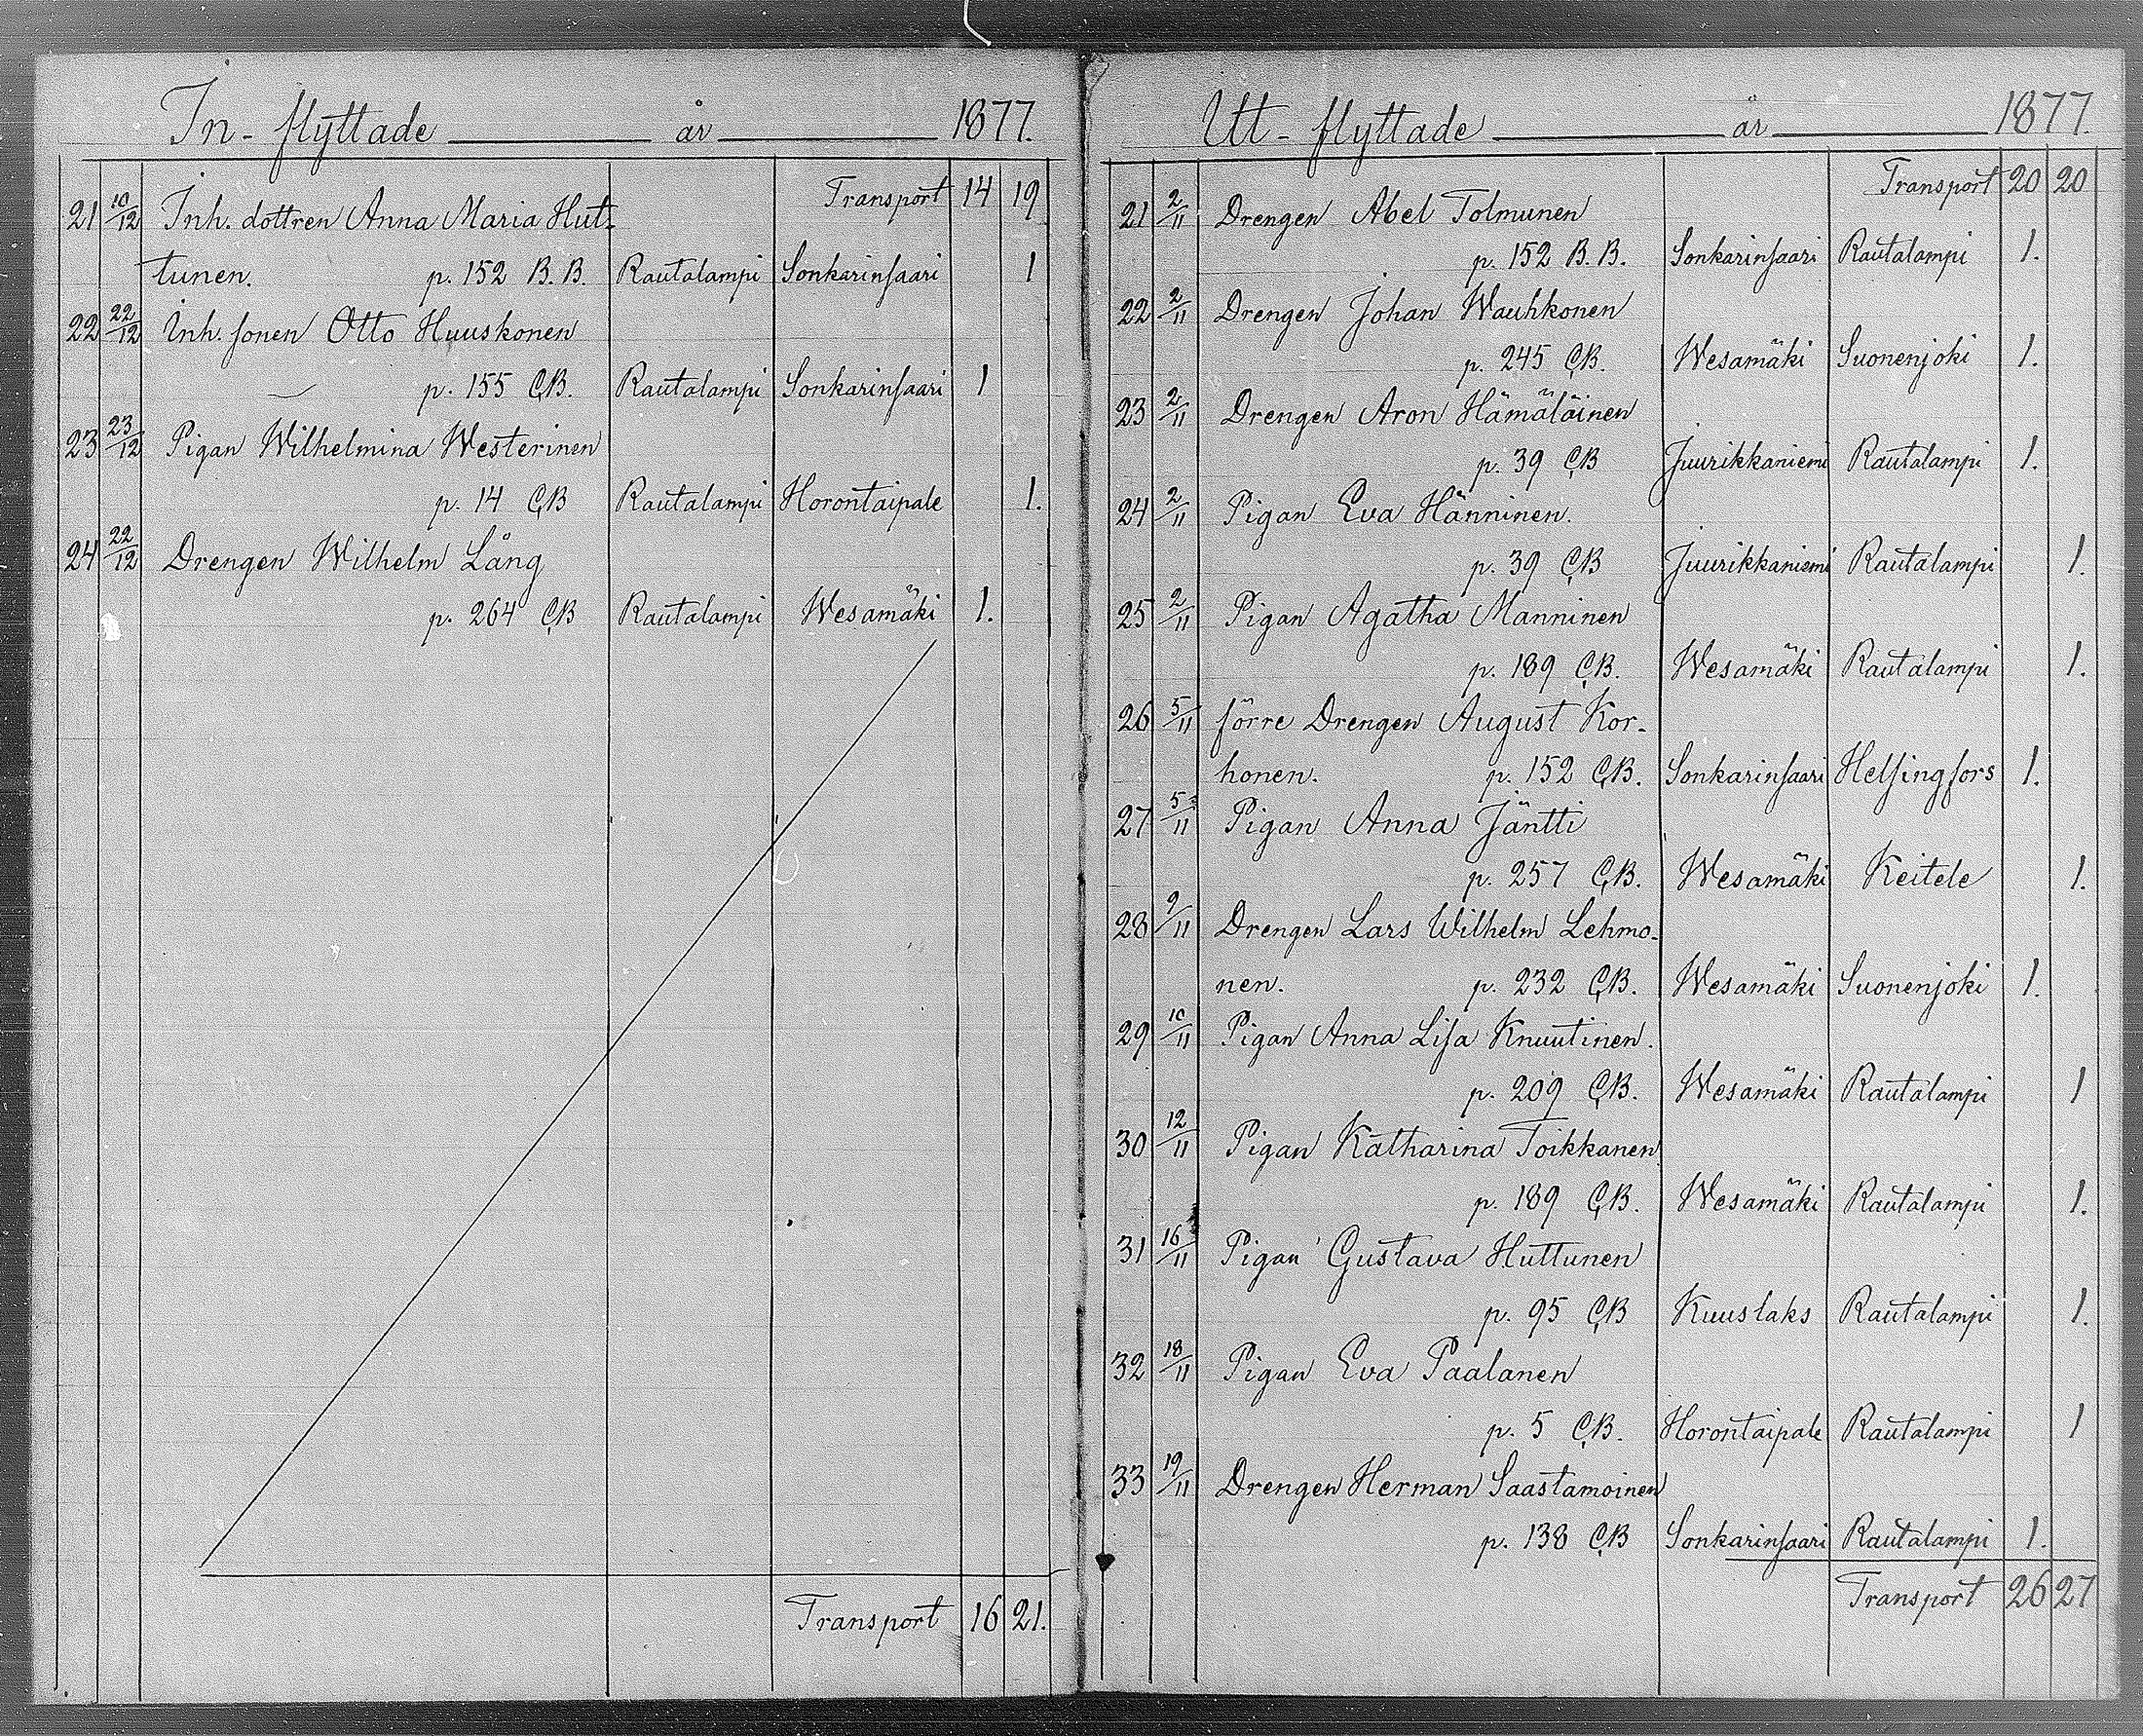 In-flyttade år 1877.
Transport 14 19
21 10/12 Inh. dottren Anna Maria Hut-
tunen. p. 152 B.B. Rautalampi Sonkarinsaari 1
22 22/12 Inh. sonen Otto Huuskonen
p. 155 C,B. Rautalampi Sonkarinsaari 1
23 23/12 Pigan Wilhelmina Westerinen
p. 14 C,B Rautalampi Horontaipale 1.
24 22/12 Drengen Wilhelm Lång
p. 264 C,B Rautalampi Wesamäki 1.
Transport 16 21.
Ut-flyttade år 1877.
Transport 20 20
21 2/11 Drengen Abel Tolmunen
p. 152 B.B. Sonkarinsaari Rautalampi 1.
22 2/11 Drengen Johan Wauhkonen
p. 245 C,B. Wesamäki Suonenjoki 1.
23 2/11 Drengen Aron Hämäläinen
p. 39 C,B Juurikkaniemi Rautalampi 1.
24 2/11 Pigan Eva Hänninen.
p. 39 C,B Juurikkaniemi Rautalampi 1.
25 2/11 Pigan Agatha Manninen
p. 189 C,B. Wesamäki Rautalampi 1.
26 5/11 förre Drengen August Kor-
honen. p. 152 C,B. Sonkarinsaari Helsingfors 1.
27 5/11 Pigan Anna Jäntti
p. 257 C,B. Wesamäki Keitele 1.
28 9/11 Drengen Lars Wilhelm Lehmo-
nen. p. 232 C,B. Wesamäki Suonenjoki 1.
29 10/11 Pigan Anna Lisa Knuutinen.
p. 209 C,B. Wesamäki Rautalampi 1
30 12/11 Pigan Katharina Toikkanen
p. 189 C,B. Wesamäki Rautalampi 1.
31 16/11 Pigan Gustava Huttunen
p. 95 C,B Kuuslaks Rautalampi 1.
32 18/11 Pigan Eva Paalanen
p. 5 C,B. Horontaipale Rautalampi 1
33 19/11 Drengen Herman Saastamoinen
p. 138 C,B Sonkarinsaari Rautalampi 1.
Transport 26 27